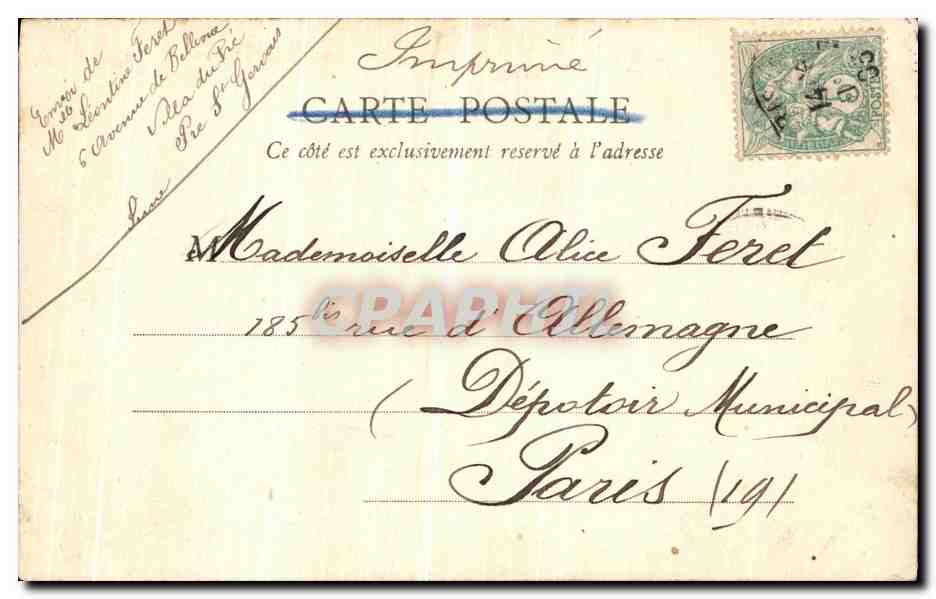 Envoi de
Mlle Léontine Feret
6 Avenue de Bellevue
Villa du Pré
Pré St Gervais
Seine
Imprimé
CARTE POSTALE
Ce côté est exclusivement reservé à l'adresse
POSTES
Mademoiselle Alice Feret
185 bis rue d'Allemagne
(Dépotoir Municipal)
Paris (19)
CPAPHIL